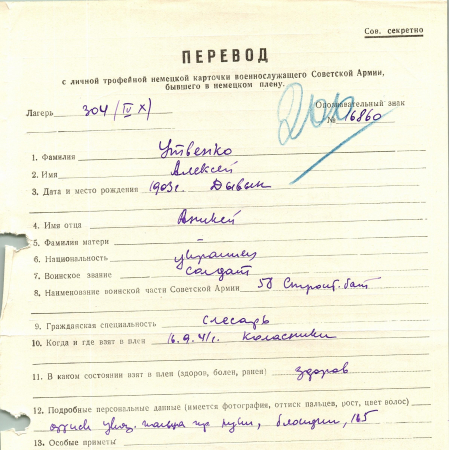 Сов. секретно
ПЕРЕВОД
с личной трофейной немецкой карточки военнослужащего Советской Армии,
бывшего в немецком плену.
Лагерь 304 /IV X/ Опознавательный знак
№ 16860
1. Фамилия Утвенко
2. Имя Алексей
3. Дата и место рождения 1903г.
4. Имя отца Аникей
5. Фамилия матери
6. Национальность украинец
7. Воинское звание солдат
8. Наименование воинской части Советской Армии 58 Строит. бат
9. Гражданская специальность слесарь
10. Когда и где взят в плен 16.9.41г. Коласники
11. В каком состоянии взят в плен (здоров, болен, ранен) здоров
12. Подробные персональные данные (имеется фотография, оттиск пальцев, рост, цвет волос)
оттиск указ. пальца пр руки, блондин, 165
13. Особые приметы